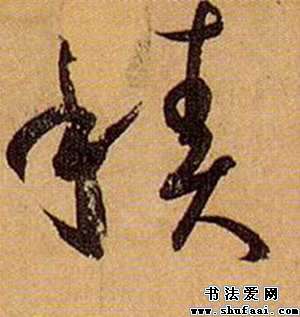 積
书法爱网
www.shufaai.com